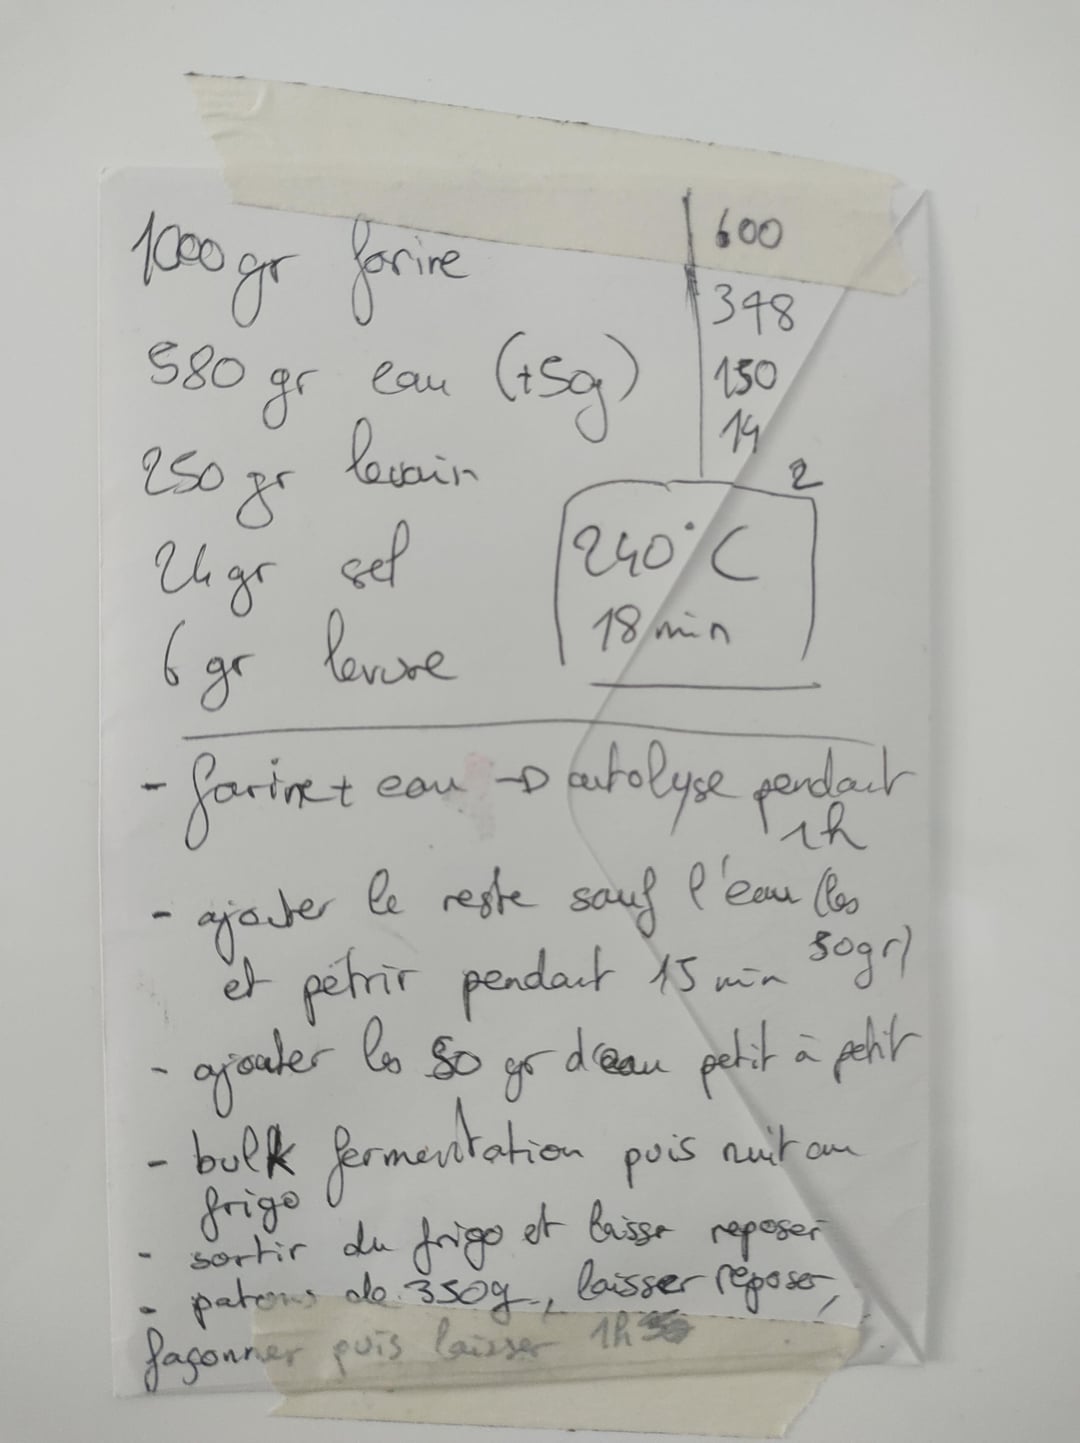 1000 gr farine
580 gr eau (+50g)
250 gr levain
24 gr sel
6 gr levure
600
348
150
14
2
240°C
18 min
- farine + eau → autolyse pendant
1h
- ajouter le reste sauf l'eau (les
50gr)
et pétrir pendant 15 min
- ajouter les 50 gr d'eau petit à petit
- bulk fermentation puis nuit au
frigo
- sortir du frigo et laisser reposer
- patons de 350g, laisser reposer,
façonner puis laisser 1h